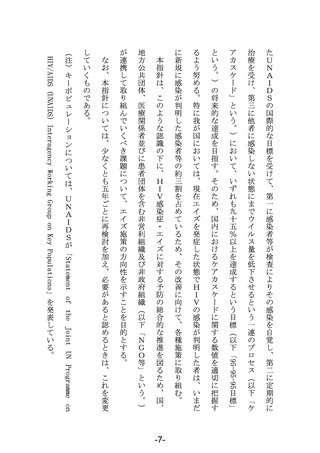 たＵＮＡＩＤＳの国際的な目標を受けて、第一に感染者等が検査によりその感染を自覚し、第二に定期的に
治療を受け、第三に他者に感染しない状態にまでウイルス量を低下させるという一連のプロセス（以下「ケ
アカスケード」という。）において、いずれも九十五％以上を達成するという目標（以下「95-95-95目標」
という。）の将来的な達成を目指す。そのため、国内におけるケアカスケードに関する数値を適切に把握す
るよう努める。特に我が国においては、現在エイズを発症した状態でＨＩＶの感染が判明した者は、いまだ
に新規に感染が判明した感染者等の約三割を占めているため、その改善に向けて、各種施策に取り組む。
本指針は、このような認識の下に、ＨＩＶ感染症・エイズに対する予防の総合的な推進を図るため、国、
地方公共団体、医療関係者並びに患者団体を含む非営利組織及び非政府組織（以下「ＮＧＯ等」という。）
が連携して取り組んでいくべき課題について、エイズ施策の方向性を示すことを目的とする。
なお、本指針については、少なくとも五年ごとに再検討を加え、必要があると認めるときは、これを変更
していくものである。
（注）キーポピュレーションについては、ＵＮＡＩＤＳが「Statement of the joint UN Programme on
HIV/AIDS (UNAIDS) Interagency Working Group on Key Populations」を発表している。
-7-